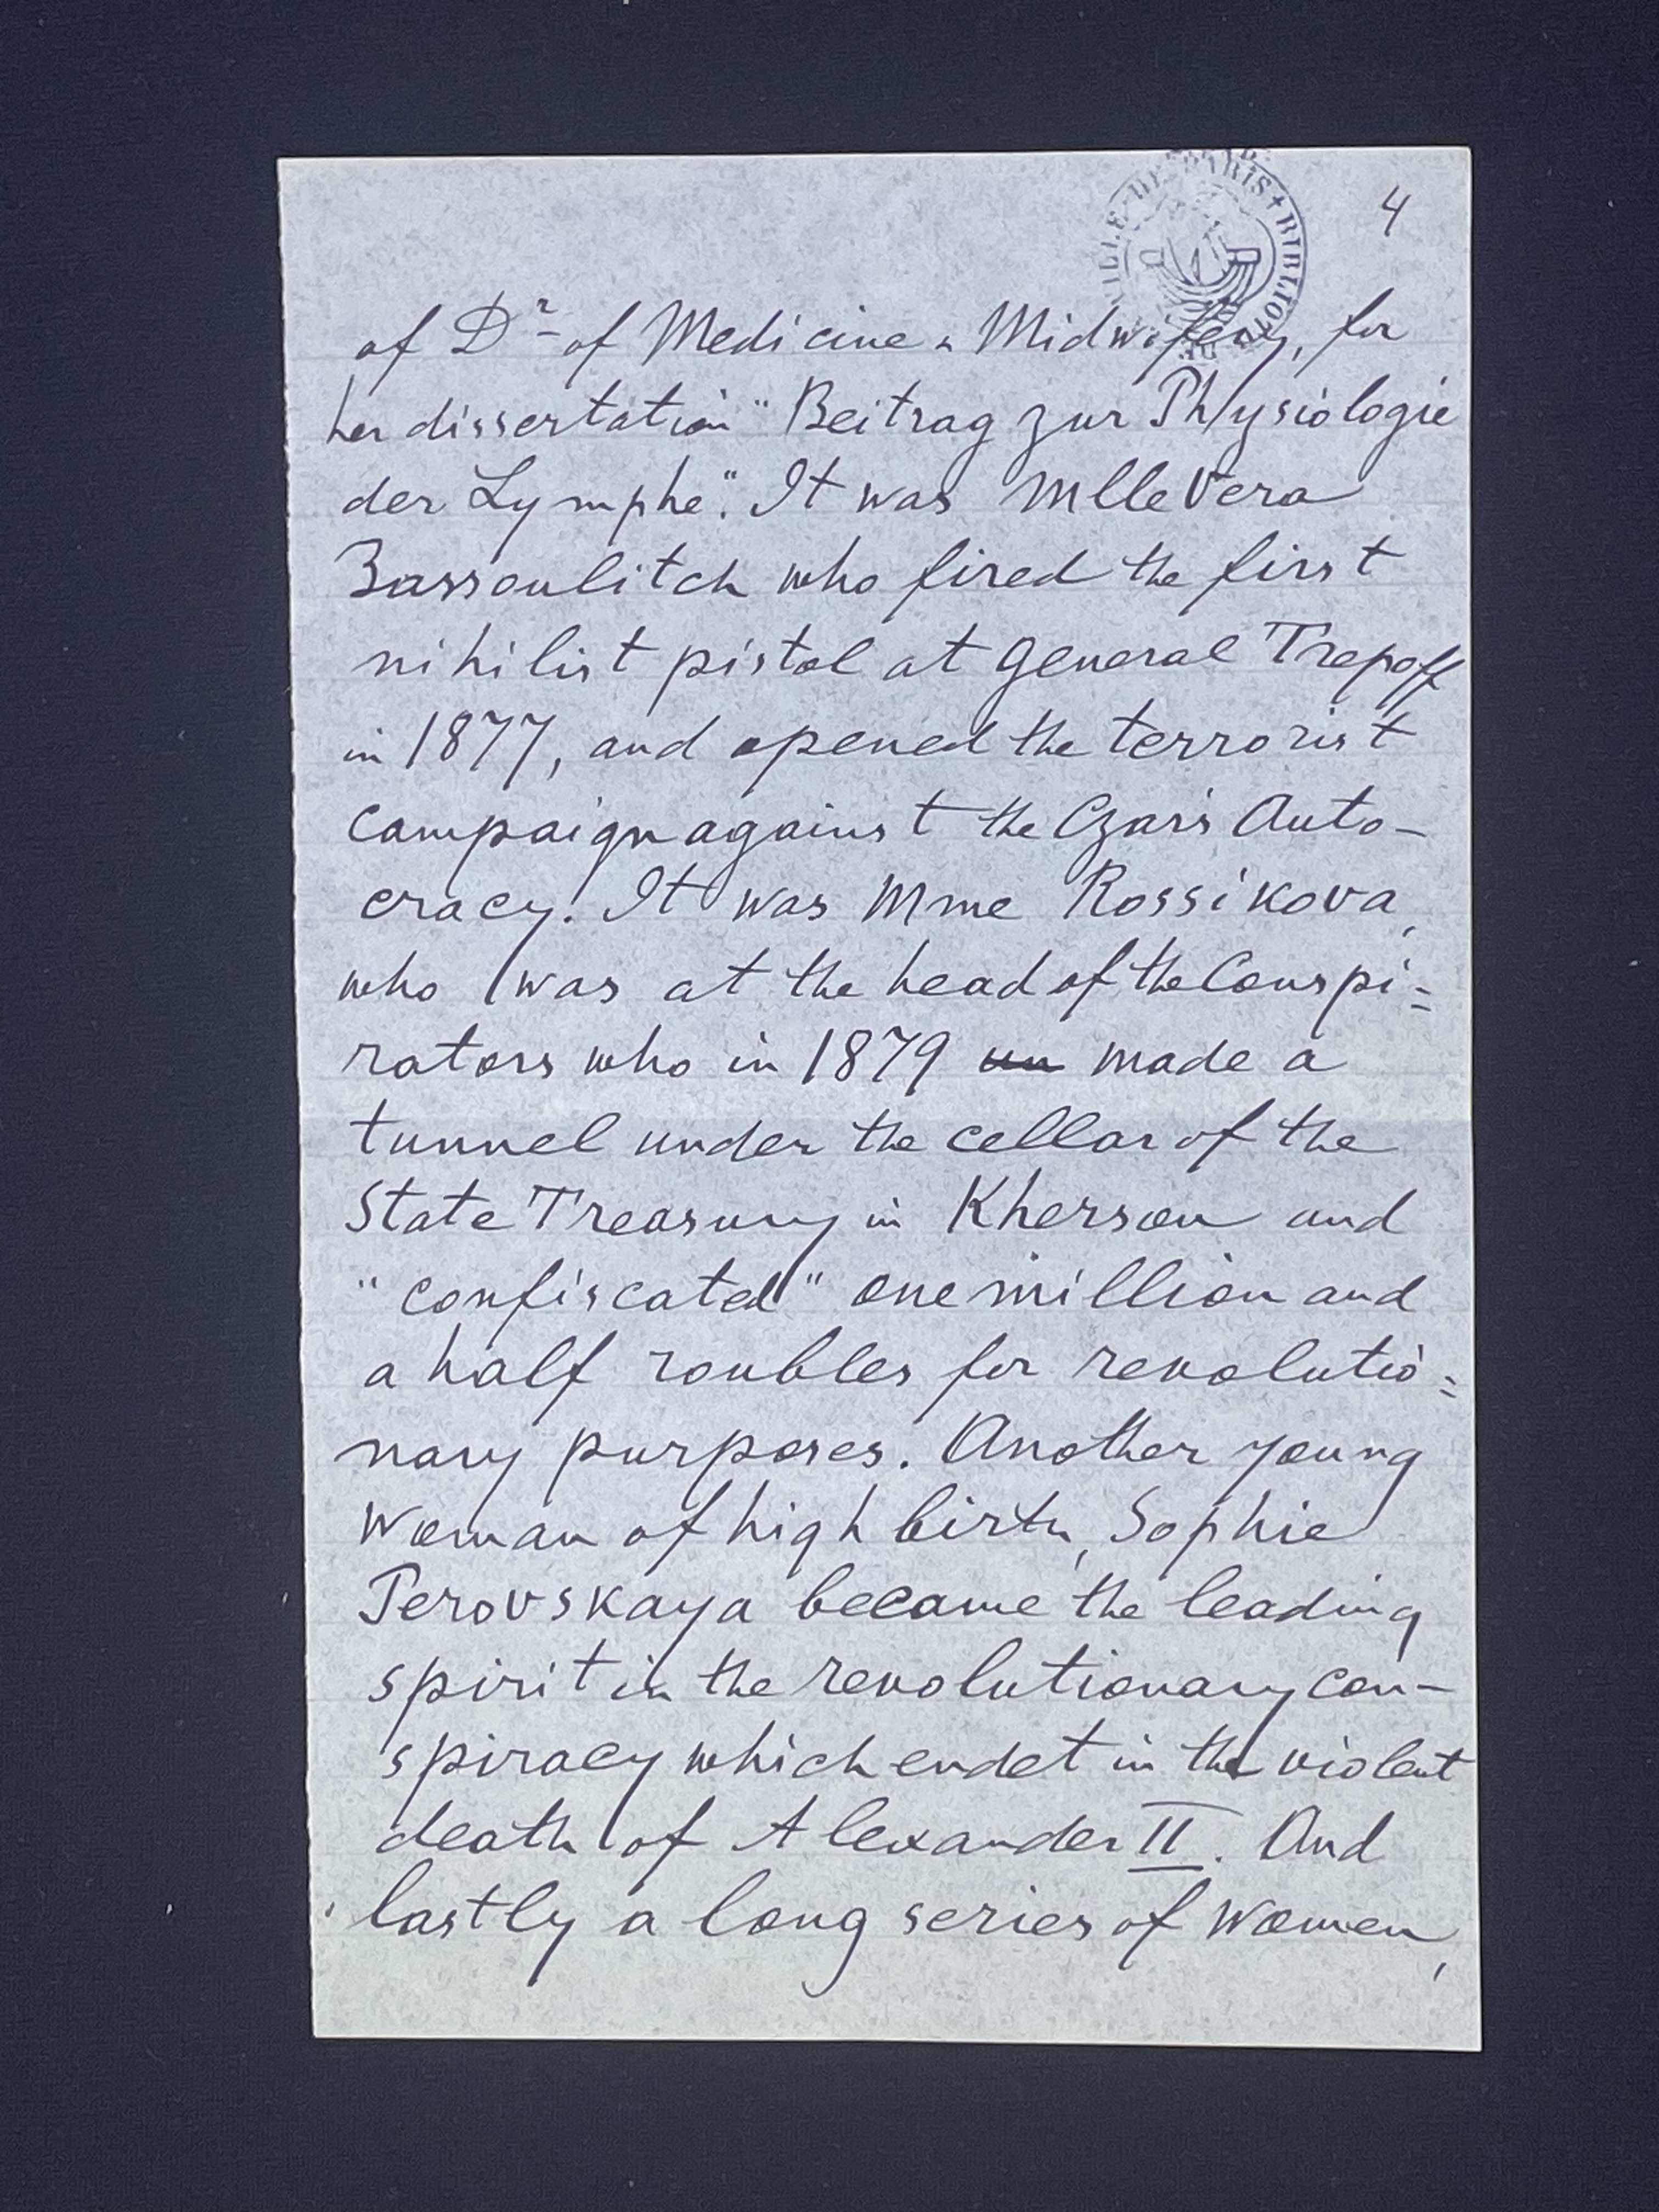 4
VILLE DE PARIS + BIBLIOT
of Dr of Medicine & Midwifery, for
her dissertation "Beitrag zur Physiologie
der Lymphe". It was Mlle Vera
Zassoulitch who fired the first
nihilist pistol at General Trepoff
in 1877, and opened the terrorist
campaign against the Czar's Auto-
cracy. It was Mme Rossikova,
who was at the head of the Conspi=
rators who in 1879 un made a
tunnel under the cellar of the
State Treasury in Kherson and
"confiscated" one million and
a half roubles for revolutio=
nary purposes. Another young
Woman of high birth, Sophie
Perovskaya became the leading
spirit in the revolutionary con-
spiracy which endet in the violent
death of Alexander II. And
lastly a long series of Women,